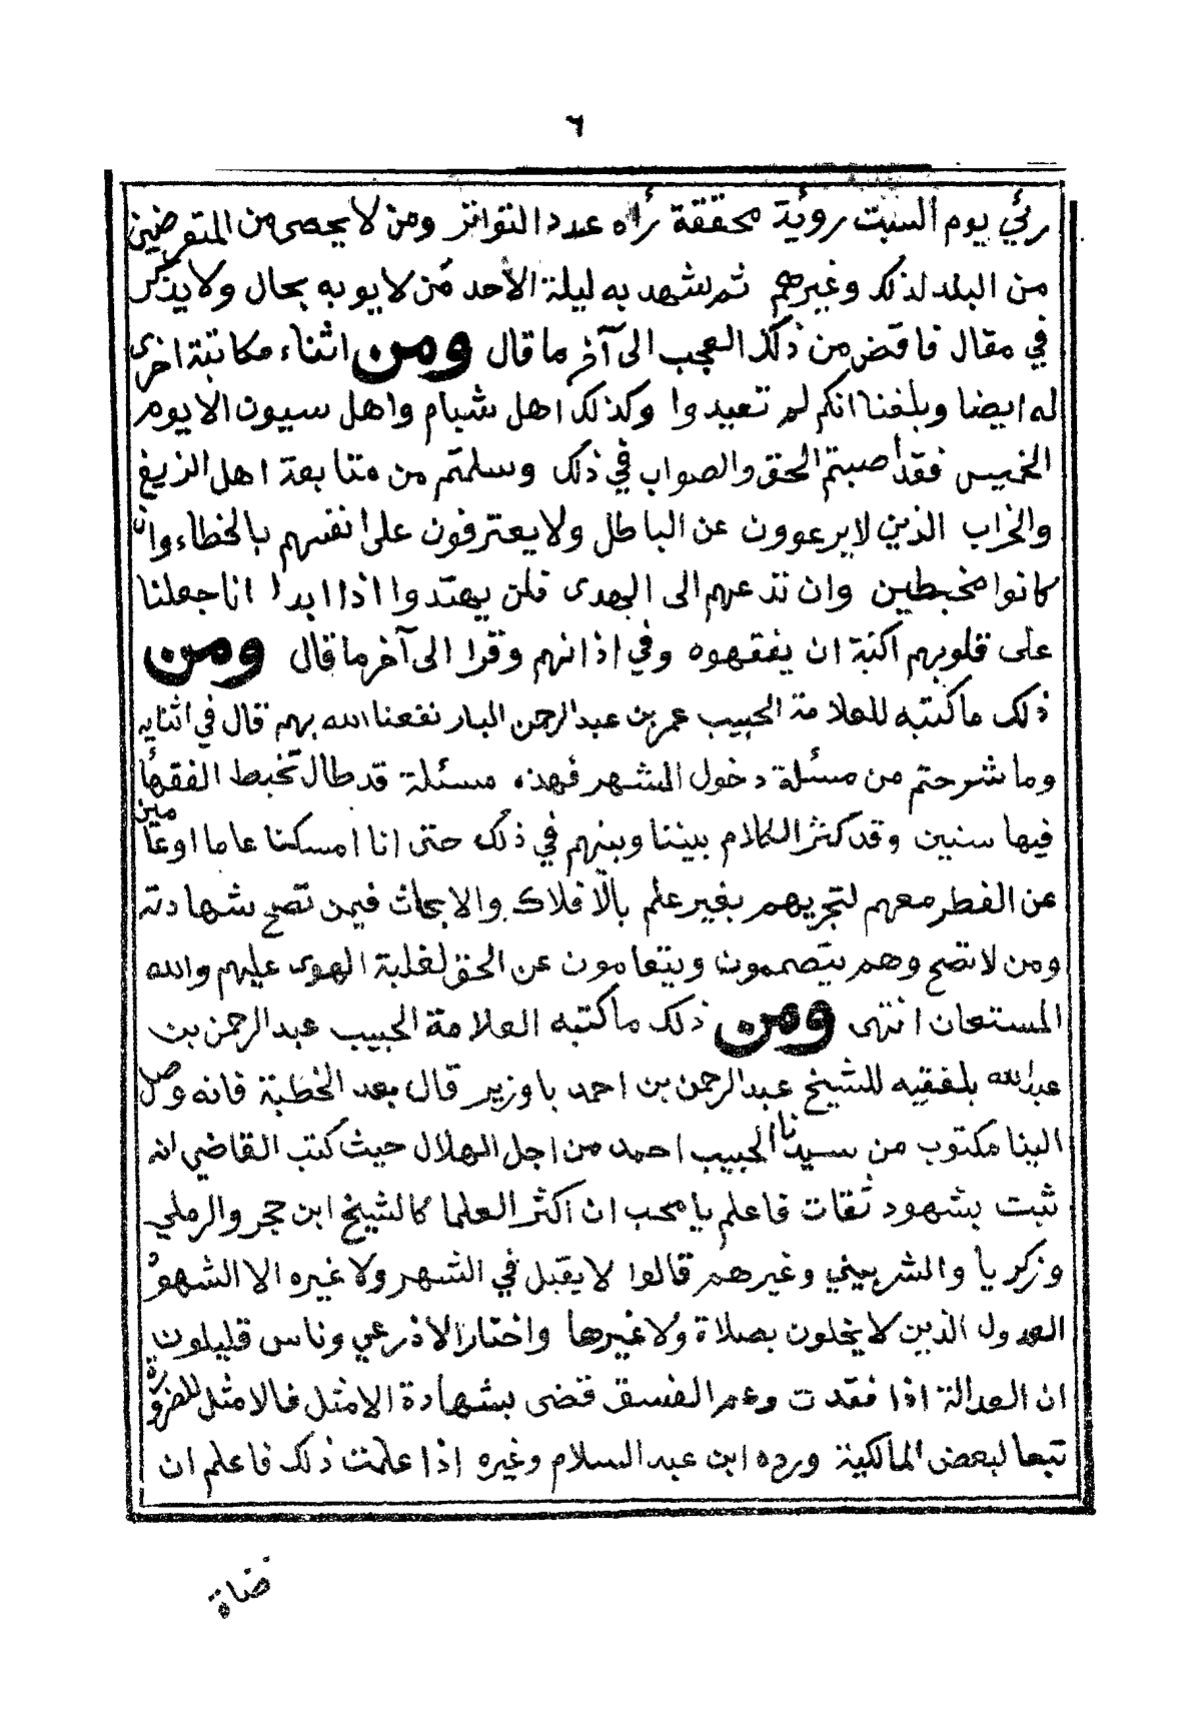 ٦
رئي يوم السبت رؤية محققة رأه عدد التواتر ومن لا يحصى من المتعرضين
من البلد لذلك وغيرهم ثم شهد به ليلة الأحد من لا يوبه بحال ولا يذكر
في مقال فاقض من ذلك العجب الى آخر ما قال ومن اثناء مكاتبة اخرى
له ايضا وبلغنا انكم لم تعيدوا وكذلك اهل شبام واهل سيون الا يوم
الخميس فقد أصبتم الحق والصواب في ذلك وسلمتم من متابعة اهل الزيغ
والخراب الذين لا يرعوون عن الباطل ولا يعترفون على انفسهم بالخطاء وان
كانوا مخبطين وان تدعهم الى الهدى فلن يهتدوا اذا ابدا انا جعلنا
على قلوبهم اكنة ان يفقهوه وفي اذانهم وقرا الى آخر ما قال ومن
ذلك ما كتبه للعلامة الحبيب عمر بن عبدالرحمن البار نفعنا الله بهم قال في اثنايه
وما شرحتم من مسئلة دخول الشهر فهذه مسئلة قد طال تخبط الفقهأ
فيها سنين وقد كثر الكلام بيننا وبينهم في ذلك حتى انا امسكنا عاما اوعامين
عن الفطر معهم لتجريهم بغير علم بالأفلاك والابحاث فيمن تصح شهادته
ومن لا تصح وهم يتصممون ويتعامون عن الحق لغلبة الهوى عليهم والله
المستعان انتهى ومن ذلك ما كتبه العلامة الحبيب عبدالرحمن بن
عبدالله بلفقيه للشيخ عبدالرحمن بن احمد باوزير قال بعد الخطبة فانه وصل
الينا مكتوب من سيدنا الحبيب احمد من اجل الهلال حيث كتب القاضي انه
ثبت بشهود ثقات فاعلم يا محب ان اكثر العلما كالشيخ ابن حجر والرملي
وزكريا والشربيني وغيرهم قالوا لا يقبل في الشهر ولا غيره الا الشهود
العدول الذين لا يخلون بصلاة ولا غيرها واختار الاذرعي وناس قليلون
ان العدالة اذا فقدت وعم الفسق قضى بشهادة الامثل فالامثل للضرورة
تبعا لبعض المالكية ورده ابن عبد السلام وغيره اذا علمت ذلك فاعلم ان
قضاة